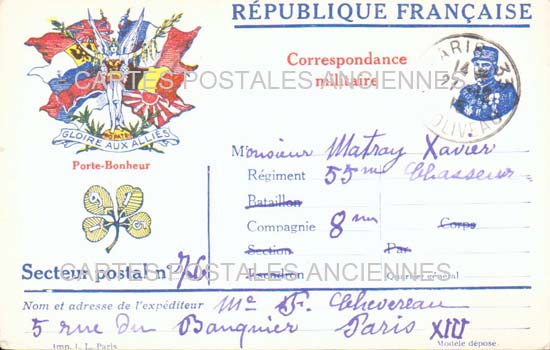 RÉPUBLIQUE FRANÇAISE
Correspondance
militaire
CARTES POSTALES ANCIENNES
GLOIRE AUX ALLIÉS
Porte-Bonheur
PARIS 33
Monsieur Matray Xavier
Régiment 55me Chasseurs
Bataillon
Compagnie 8me Corps
Section Par
Secteur postal n° 76 Escadron Quartier général
CARTES POSTALES ANCIENNES
Nom et adresse de l'expéditeur Me F. Chevereau
5 rue du Banquier Paris XIV
Imp. L. L. Paris Modèle déposé.